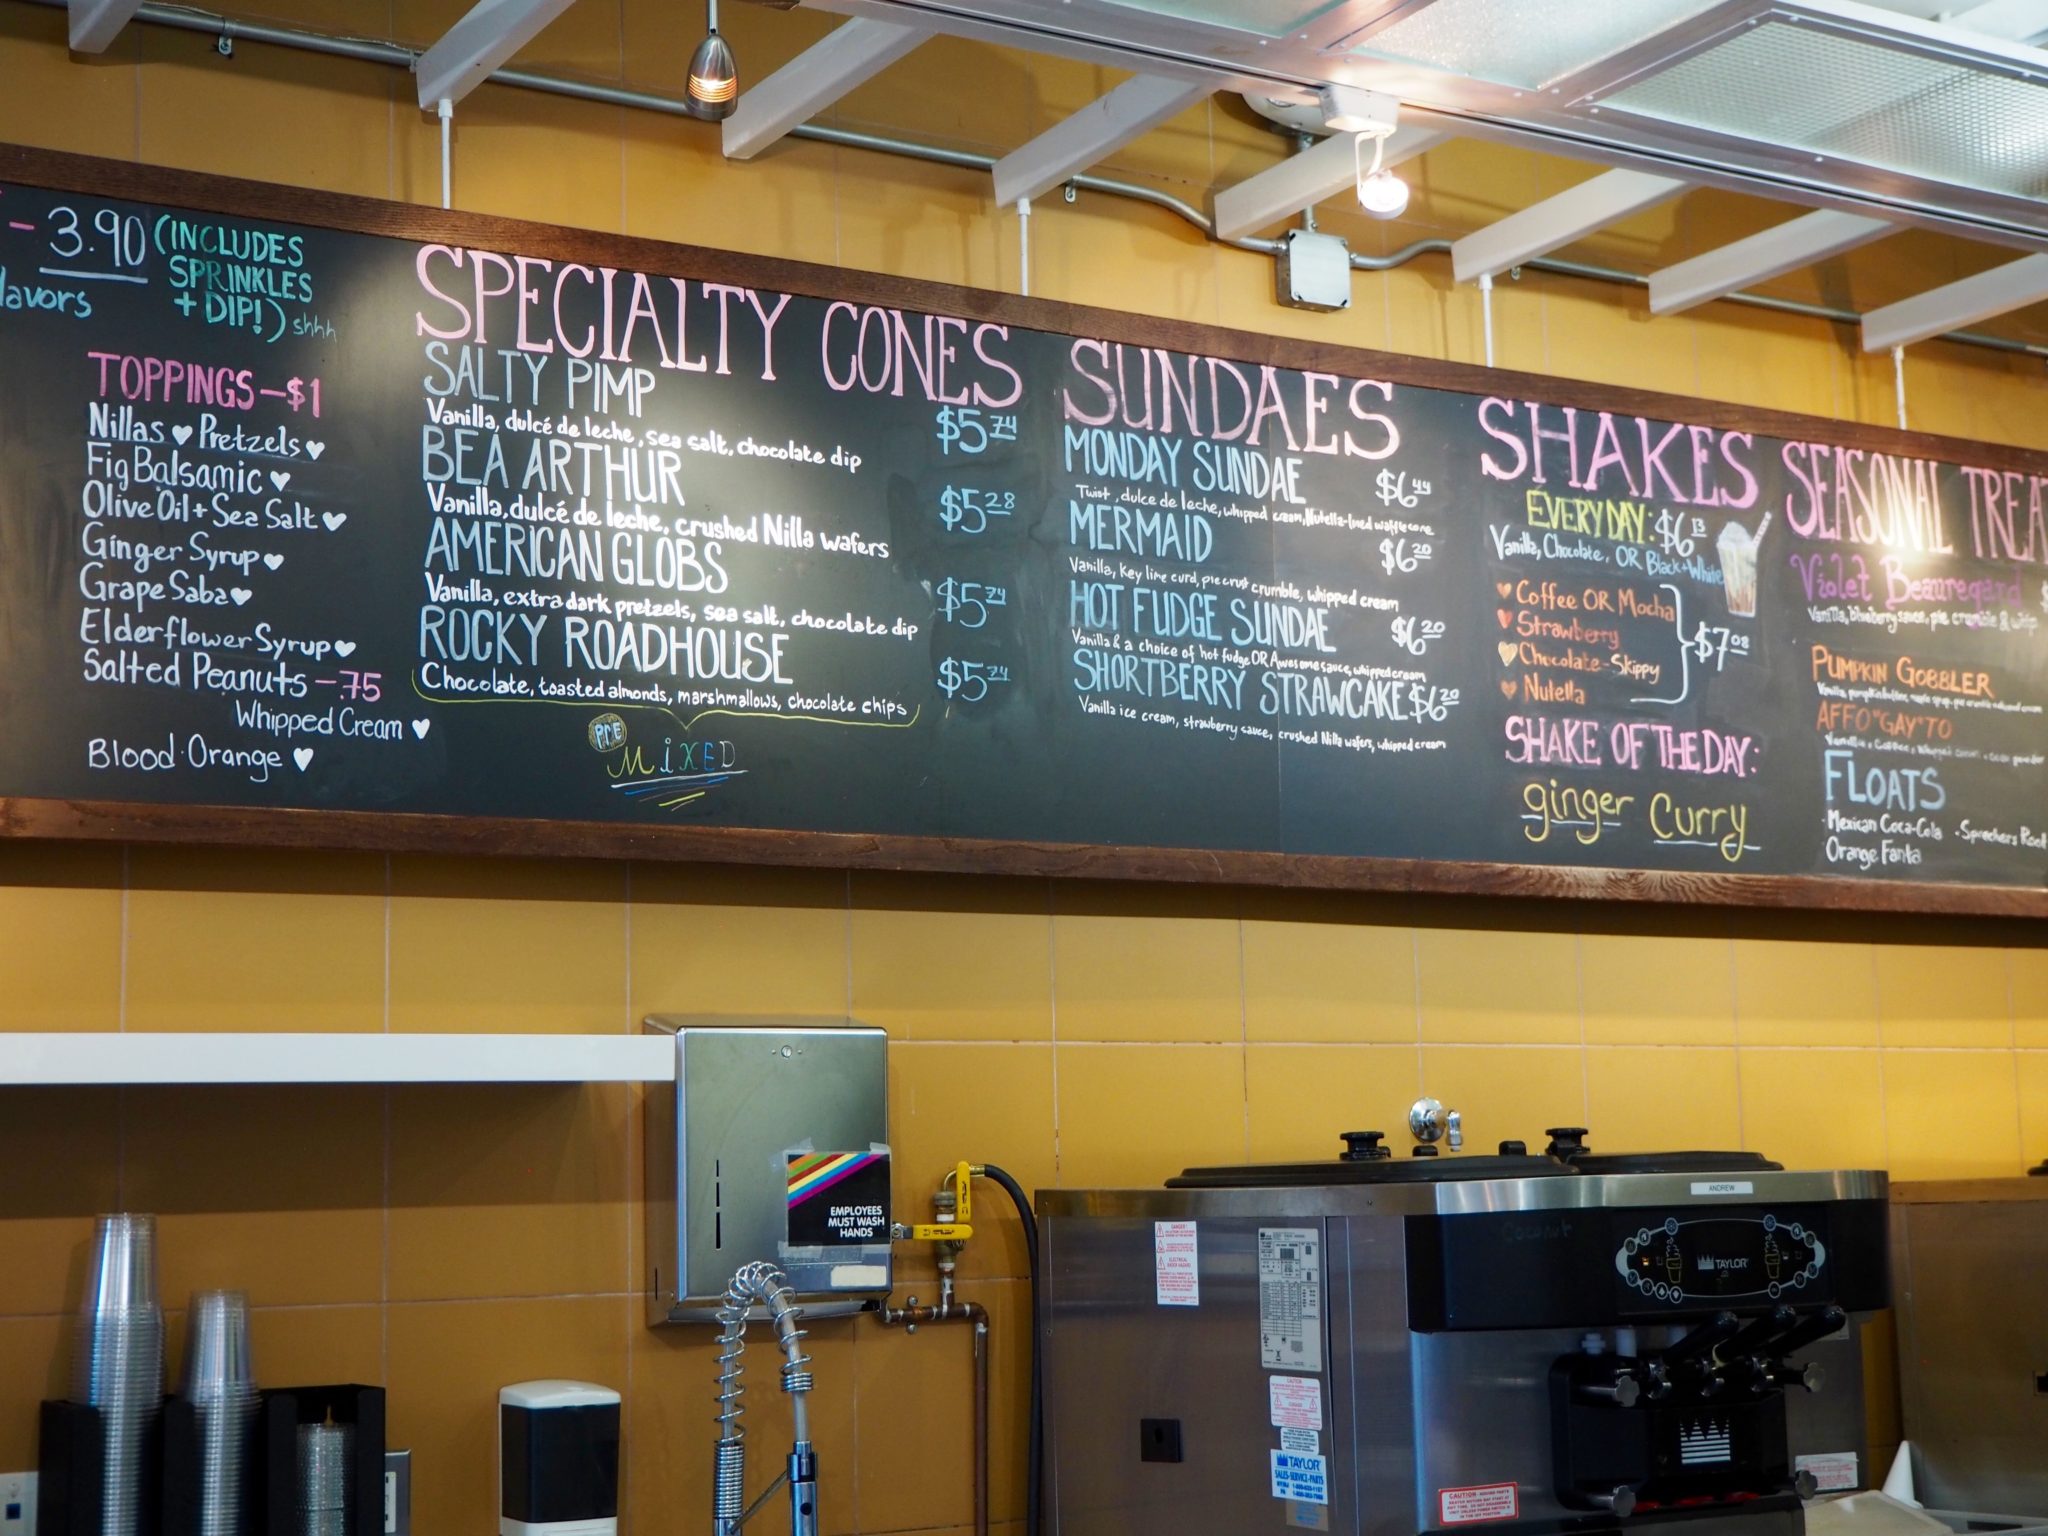 - 3.90 (INCLUDES
SPRINKLES
+ DIP!) shhh
lavors
TOPPINGS - $1
Nillas ♥ Pretzels ♥
Fig Balsamic ♥
Olive Oil + Sea Salt ♥
Ginger Syrup ♥
Grape Saba ♥
Elderflower Syrup ♥
Salted Peanuts - .75
Whipped Cream ♥
Blood Orange ♥
SPECIALTY CONES
SALTY PIMP
Vanilla, dulcé de leche, sea salt, chocolate dip $5 74
BEA ARTHUR
Vanilla, dulcé de leche, crushed Nilla wafers $5 28
AMERICAN GLOBS
Vanilla, extra dark pretzels, sea salt, chocolate dip $5 74
ROCKY ROADHOUSE
Chocolate, toasted almonds, marshmallows, chocolate chips $5 74
PRE
MIXED
SUNDAES
MONDAY SUNDAE $6 44
Twist, dulce de leche, whipped cream, Nutella-lined waffle cone
MERMAID $6 20
Vanilla, key lime curd, pie crust crumble, whipped cream
HOT FUDGE SUNDAE $6 20
Vanilla & a choice of hot fudge OR Awesomesauce, whipped cream
SHORTBERRY STRAWCAKE $6 20
Vanilla ice cream, strawberry sauce, crushed Nilla wafers, whipped cream
SHAKES
EVERYDAY: $6 13
Vanilla, Chocolate, OR Black+White
♥ Coffee OR Mocha
♥ Strawberry
♥ Chocolate-Skippy
♥ Nutella
$7 08
SHAKE OF THE DAY:
ginger Curry
SEASONAL TREA
Violet Beauregard $
Vanilla, blueberry sauce, pie crumble & whip
PUMPKIN GOBBLER
Vanilla, pumpkin butter, maple syrup, pie
AFFO "GAY" TO
Vanilla, coffee, whipped cream, powder
FLOATS
· Mexican Coca-Cola · Sprechers Root
Orange Fanta
EMPLOYEES
MUST WASH
HANDS
ANDREW
Coconut
TAYLOR
DANGER
ELECTRICAL
SHOCK HAZARD
CAUTION
TAYLOR
SALES-SERVICE-PARTS
CAUTION